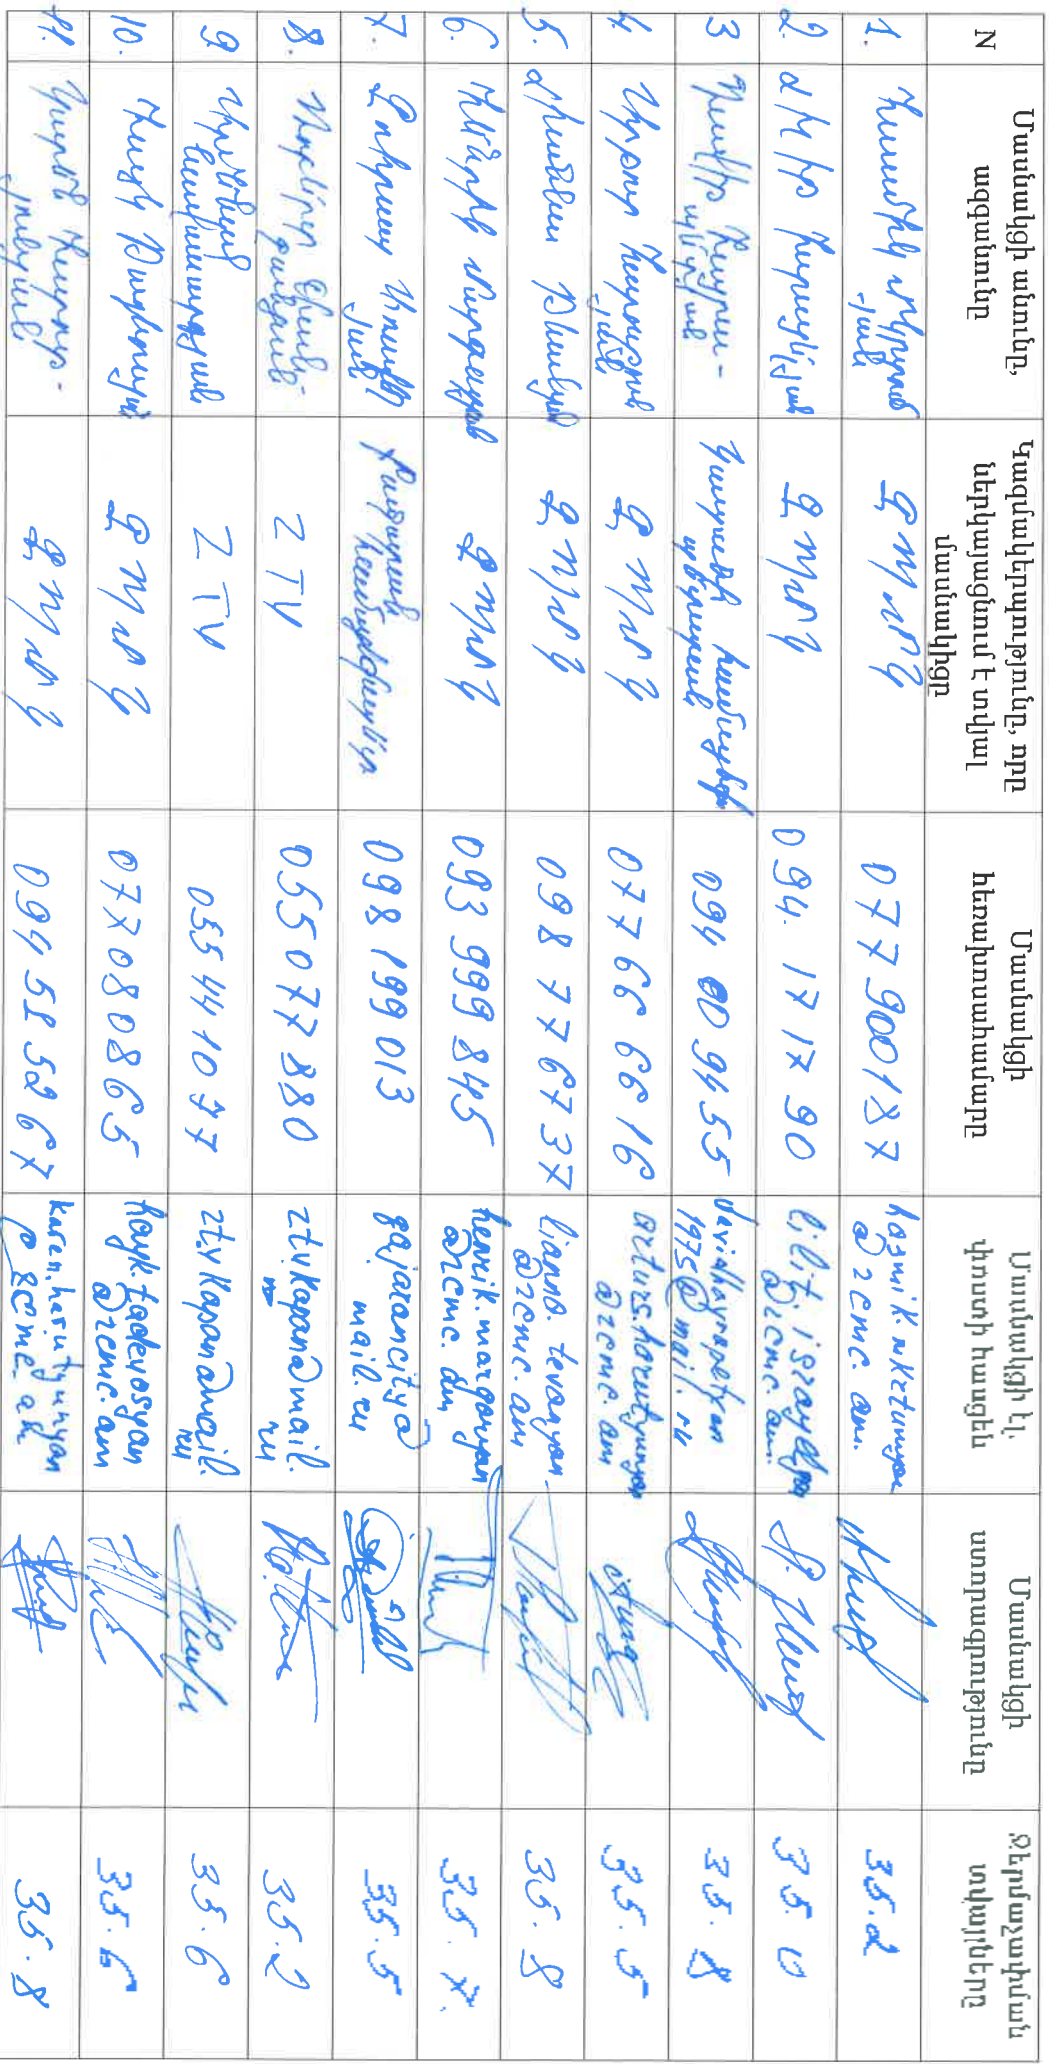 N
Մասնակցի անունը, ազգանունը
Կազմակերպությունը, որը ներկայացնում է տվյալ մասնակիցը
Մասնակցի հեռախոսահամարը
Մասնակցի էլ. փոստի հասցեն
Մասնակցի ստորագրությունը
Ջերմաչափման տվյալները
1. Հասմիկ Մկրտում-յան ԶՊՄԿ 077900187 hasmik.mkrtumyan@zcmc.am. 35.2
2. Լիլիթ Իսրայելյան ԶՊՄԿ 094. 17 17 90 lilit.israyelyan@zcmc.am. 35.0
3 Դավիթ Հայրապետյան Կապանի համայնքապետարան 094 00 94 55 davidhayrapetyan1975@mail.ru 35.8
4. Արթուր Հարություն-յան ԶՊՄԿ 077 66 66 16 arturs.harutyunyan@zcmc.am 35.5
5. Լիաննա Թևանյան ԶՊՄԿ 098 77 67 37 lianna.tevanyan@zcmc.am 35.8
6. Հենրիկ Մարգարյան ԶՊՄԿ 093 999 845 henrik.margaryan@zcmc.am 35.7.
7. Քաջարան համայնքապետարան 098 199 013 gajarancity@mail.ru 35.5
8. ZTV 055077880 ztvkapan@mail.ru 35.2
9 ZTV 055 44 10 77 ztvkapan@mail.ru 35.6
10. Հայկ Թադևոսյան ԶՊՄԿ 077 08 08 65 hayk.tadevosyan@zcmc.am 35.6
11. Կարեն Հարութ-յունյան ԶՊՄԿ 094 58 52 67 karen.harutyunyan@zcmc.am 35.8